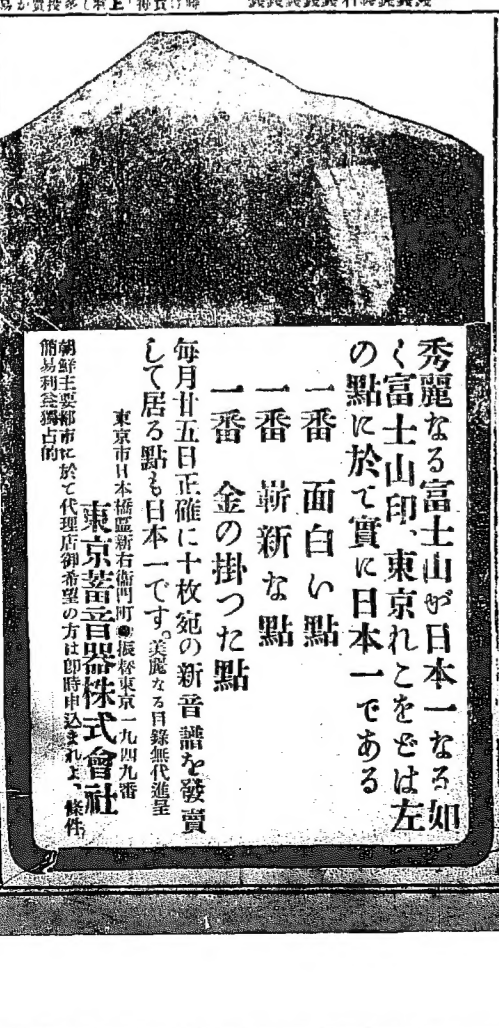 秀麗なる富士山が日本一なる如
く富士山印、東京れこをどは左
の點に於て實に日本一である
一番 面白い點
一番 嶄新な點
一番 金の掛つた點
毎月廿五日正確に十枚宛の新音譜を發賣
して居る點も日本一です。美麗なる目錄無代進呈
東京市日本橋區新右衞門町●振替東京一九四九番
東京蓄音器株式會社
朝鮮主要都市に於て代理店御希望の方は卽時申込まれよ、條件
簡易利益獨占的